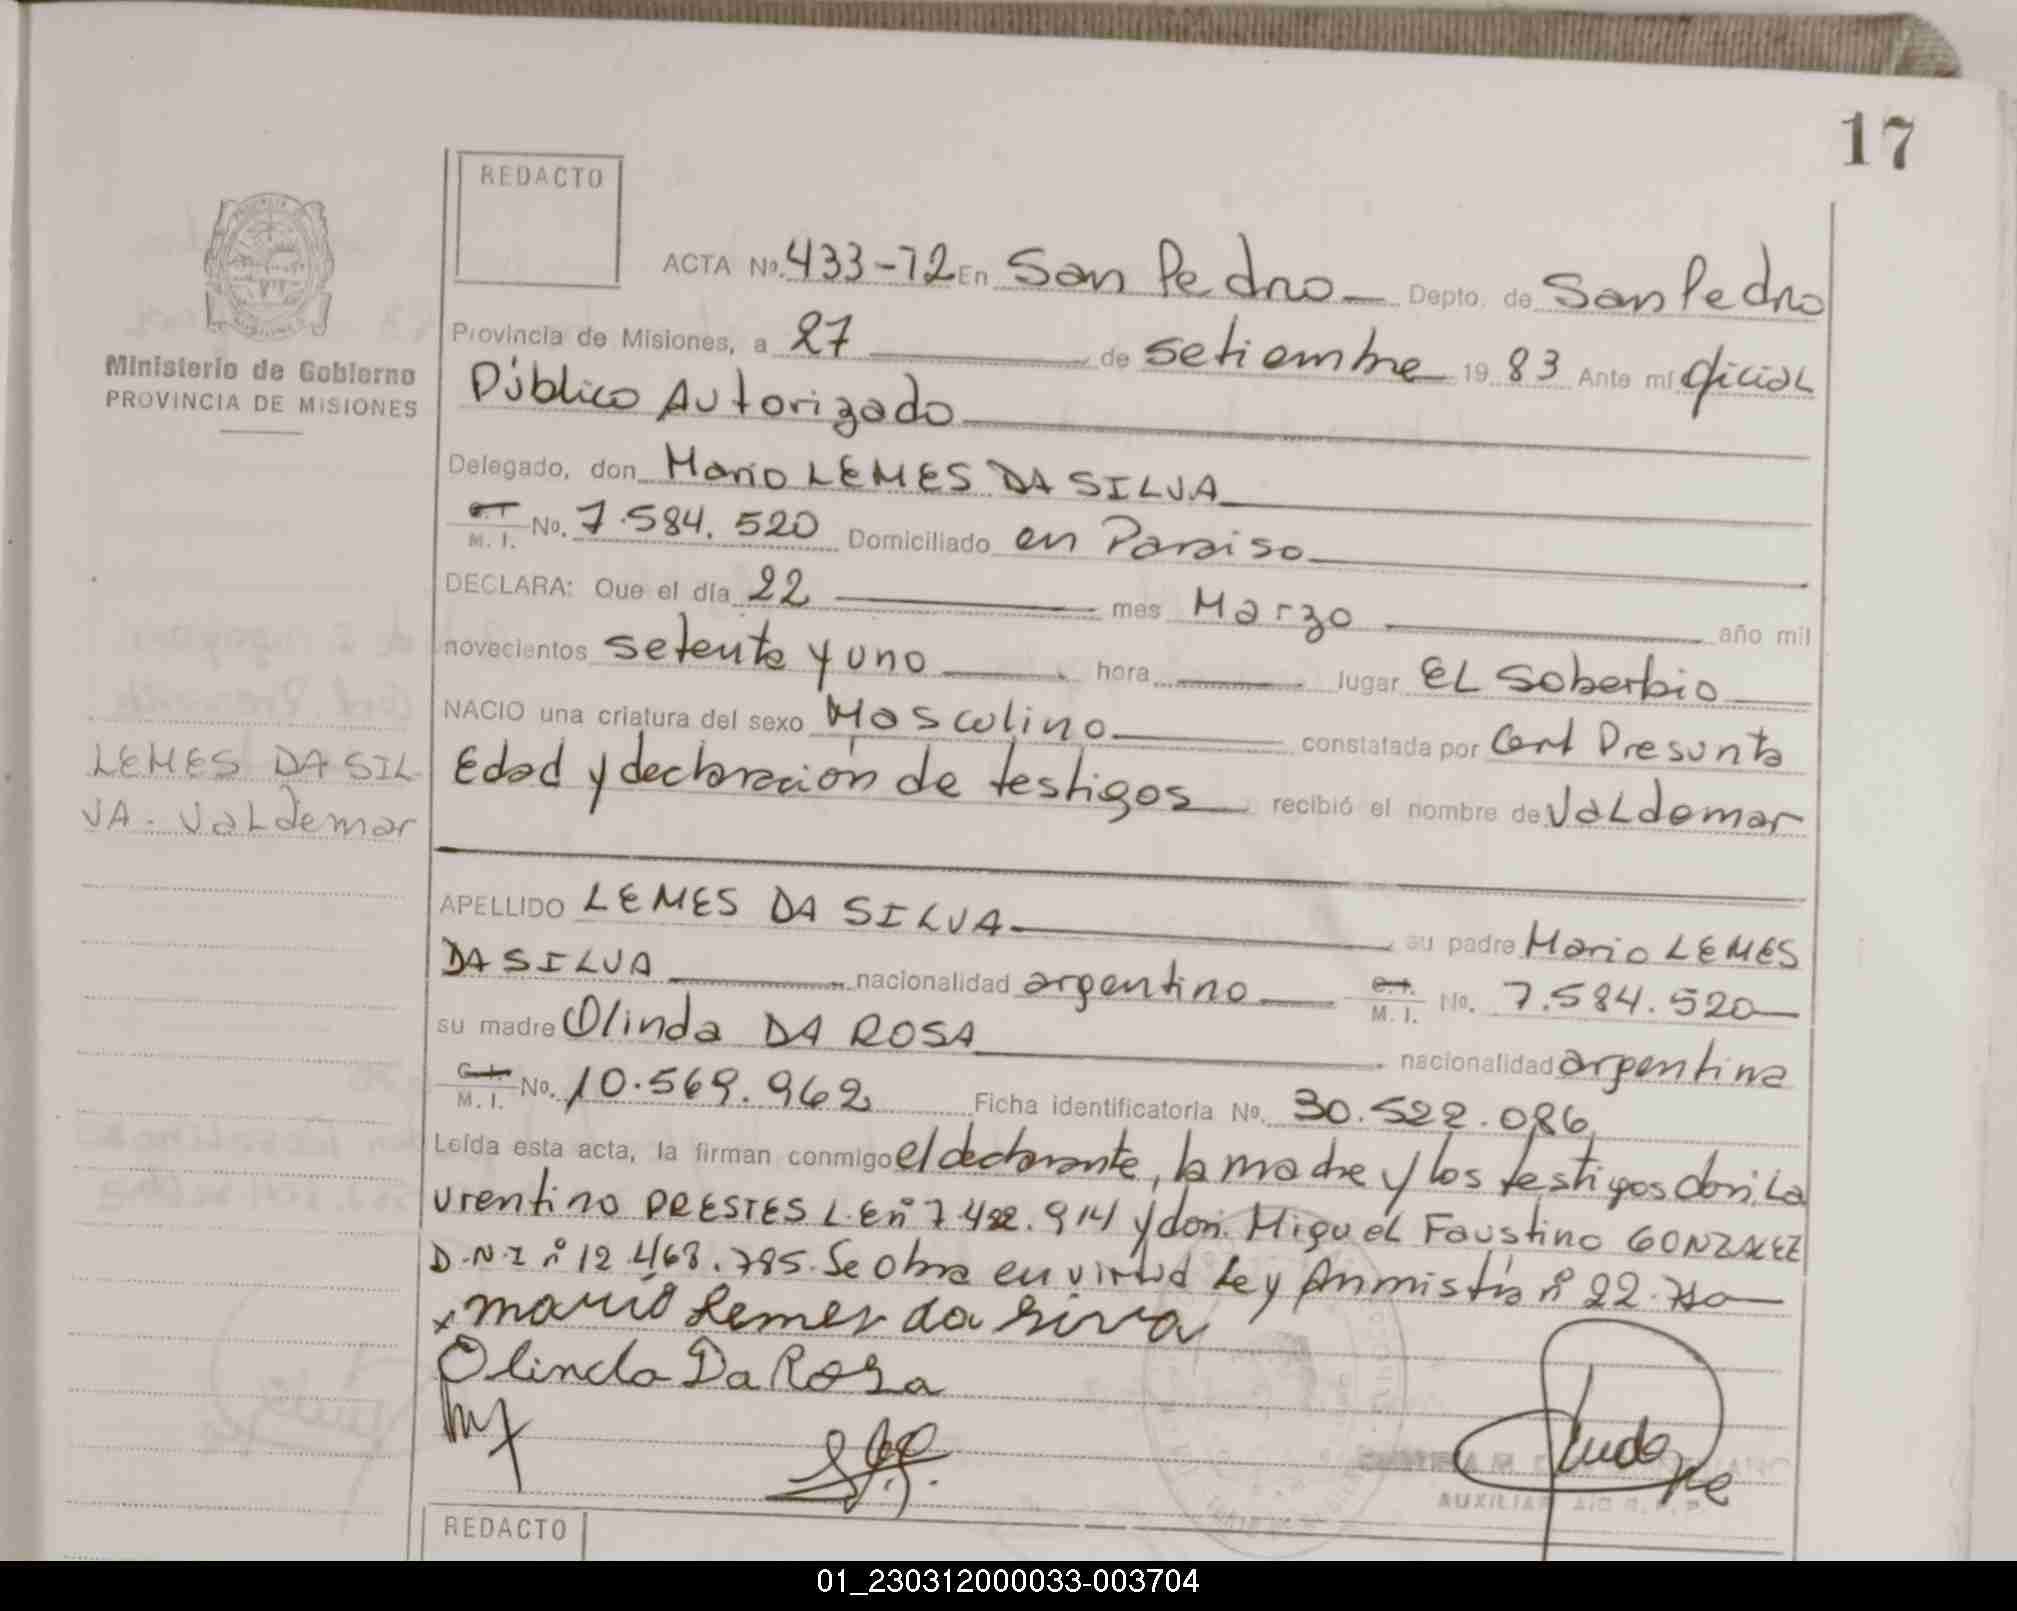 17
REDACTO
ACTA No. 433-72 En San Pedro Depto. de San Pedro
Provincia de Misiones, a 27 de setiembre 19 83 Ante mí oficial
Público Autorizado
Ministerio de Gobierno
PROVINCIA DE MISIONES
Delegado, don Mario LEMES DA SILVA
C.I. M. I. No. 7.584.520 Domiciliado en Paraiso
DECLARA: Que el día 22 mes Marzo año mil
novecientos setenta y uno hora lugar EL Soberbio
NACIO una criatura del sexo Masculino constatada por Cert Presunta
Edad y declaración de testigos recibió el nombre de VaLdemar
LEMES DA SIL
VA. VaLdemar
APELLIDO LEMES DA SILVA su padre Mario LEMES
DA SILVA nacionalidad argentino C.I. M. I. No. 7.584.520
su madre Olinda DA ROSA nacionalidad argentina
C.I. M. I. No. 10.569.962 Ficha identificatoria No. 30.522.086
Leída esta acta, la firman conmigo el declarante, la madre y los testigos don: La
urentino PRESTES L.E nº 7.482.914 y don: Miguel Faustino GONZALEZ
D.N.I nº 12.468.785. Se obra en virtud Ley Anmistía nº 22.
x mario Lemes da Silva
Olinda Da Rosa
AUXILIAR
REDACTO
01_230312000033-003704